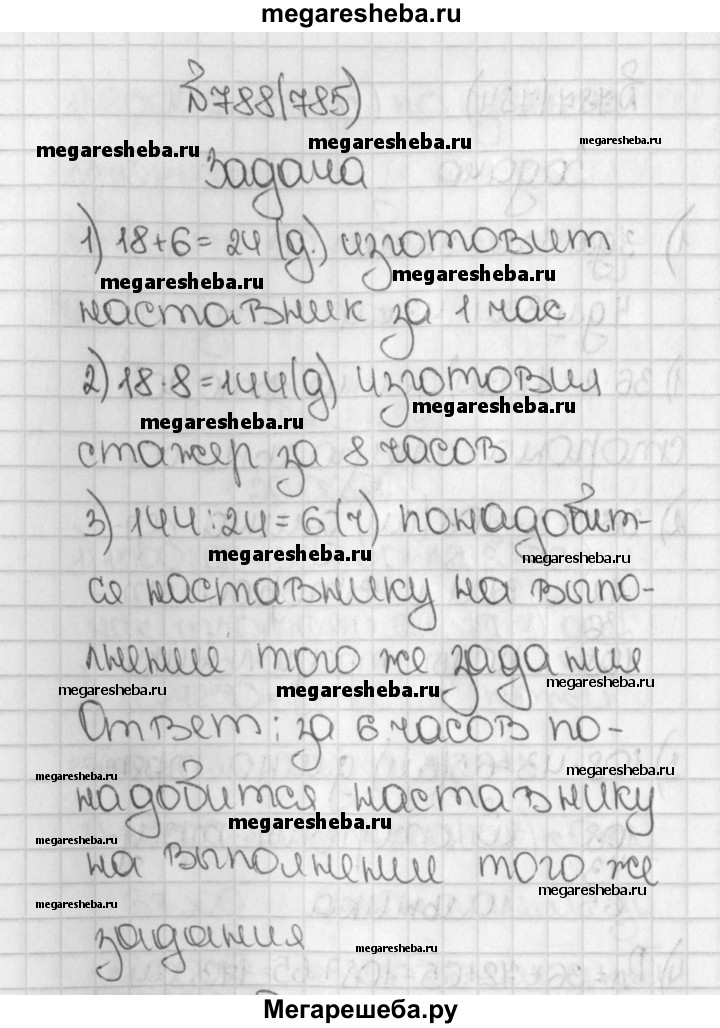 megaresheba.ru
№788(785)
megaresheba.ru megaresheba.ru megaresheba.ru
Задача
1) 18+6=24 (д.) изготовит
megaresheba.ru megaresheba.ru
наставник за 1 час
2) 18·8=144(д) изготовил
megaresheba.ru megaresheba.ru
стажер за 8 часов
3) 144:24=6(ч) понадобит-
megaresheba.ru megaresheba.ru
ся наставнику на выпо-
лнение того же задания
megaresheba.ru megaresheba.ru megaresheba.ru
Ответ: за 6 часов по-
megaresheba.ru megaresheba.ru
надобится наставнику
megaresheba.ru
на выполнение того же
megaresheba.ru megaresheba.ru megaresheba.ru
задания
megaresheba.ru
Мегарешеба.ру